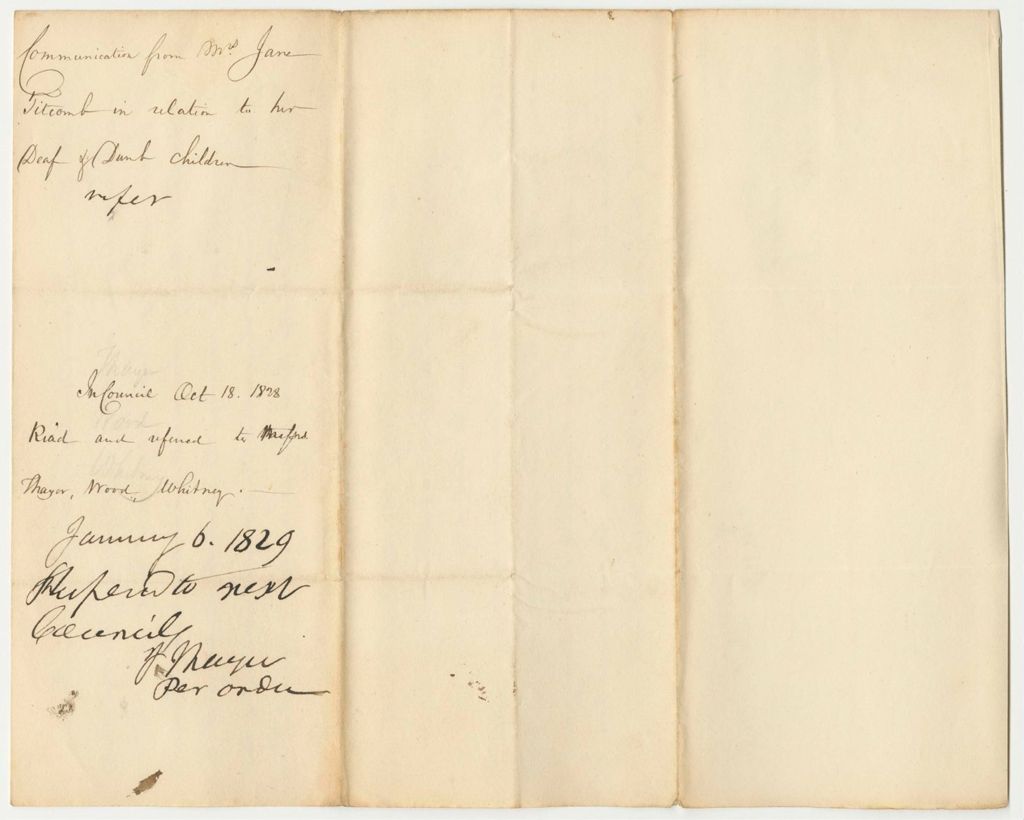 Communication from Mrs Jane
Titcomb in relation to her
Deaf & Dumb children
refer
In Council Oct 18. 1828
Read and referred to Messrs
Thayer, Wood, Whitney.
January 6. 1829
to next
Council
Thayer
Per order